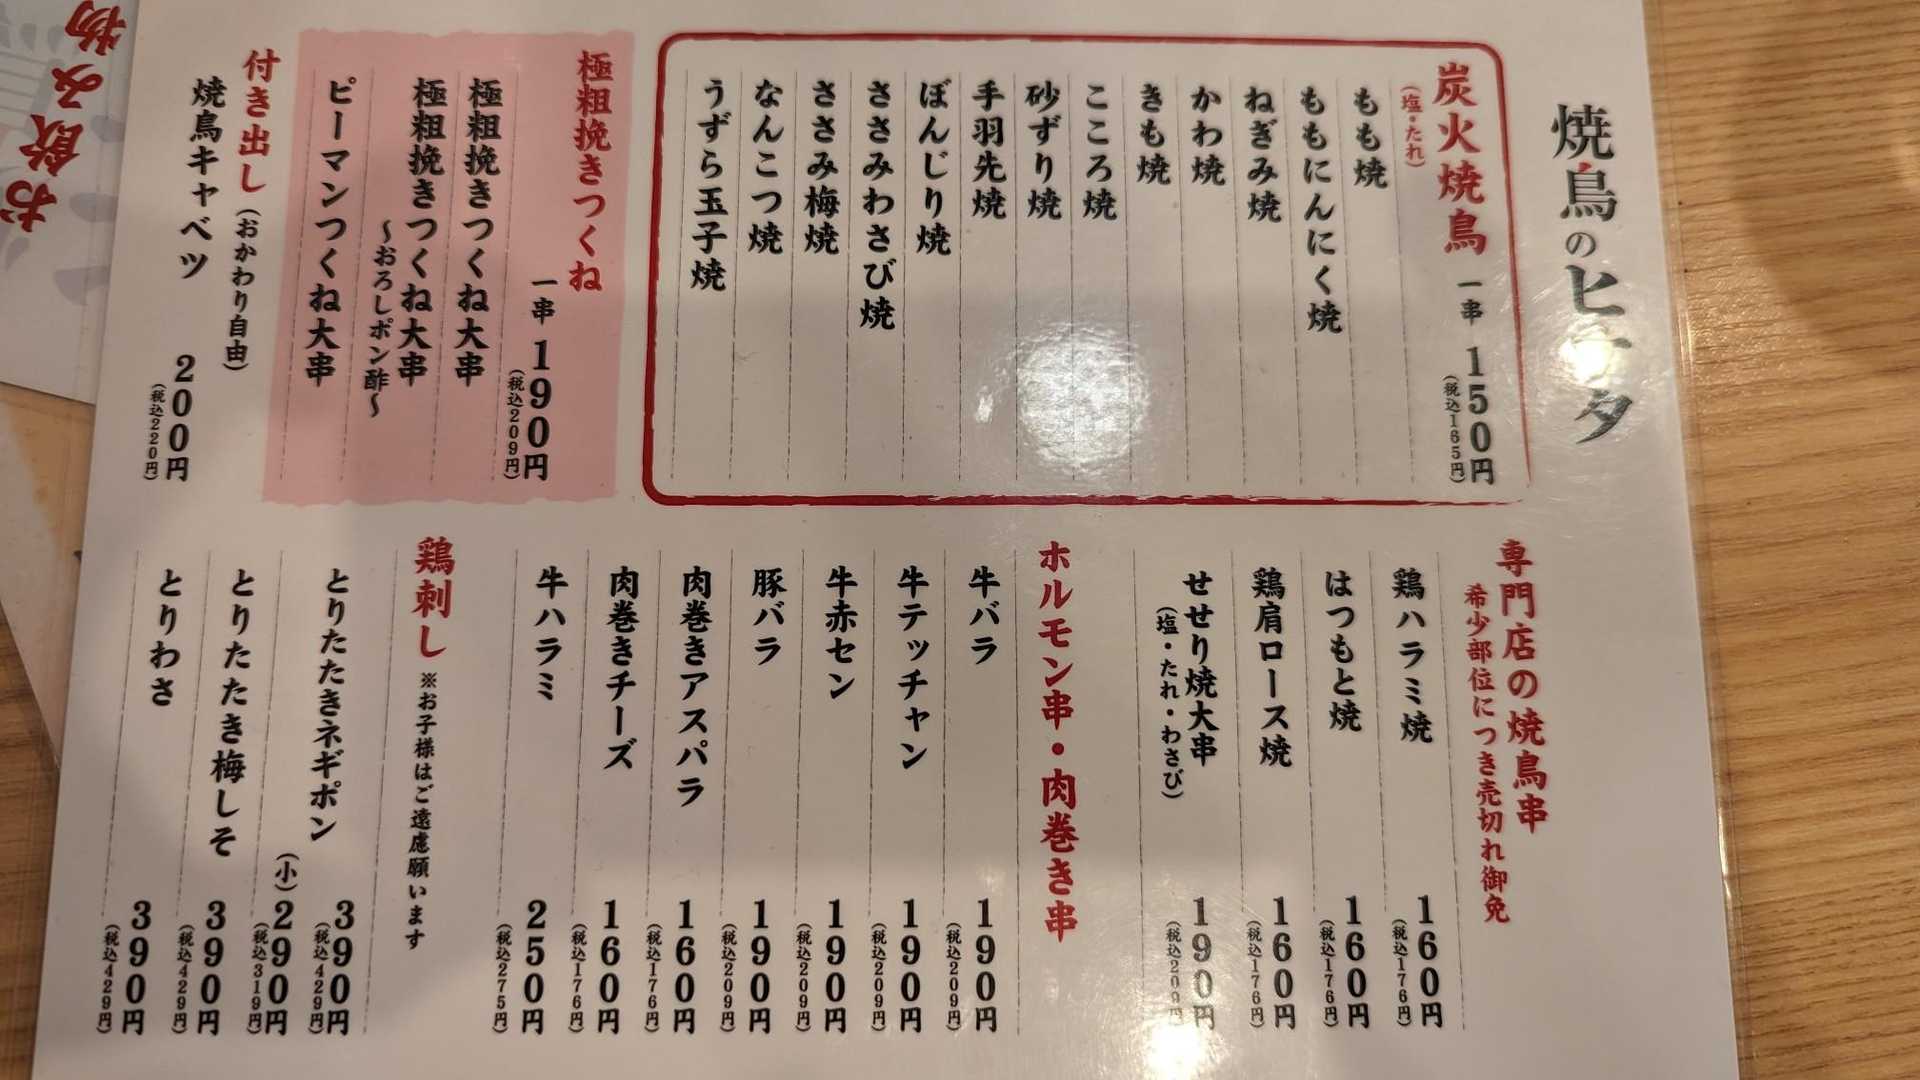 焼鳥のヒナタ
炭火焼鳥 一串 150円
(塩・たれ)
(税込165円)
もも焼
ももにんにく焼
ねぎみ焼
かわ焼
きも焼
こころ焼
砂ずり焼
手羽先焼
ぼんじり焼
ささみわさび焼
ささみ梅焼
なんこつ焼
うずら玉子焼
極粗挽きつくね
一串 190円
(税込209円)
極粗挽きつくね大串
極粗挽きつくね大串
～おろしポン酢～
ピーマンつくね大串
付き出し(おかわり自由)
焼鳥キャベツ 200円
(税込220円)
専門店の焼鳥串
希少部位につき売切れ御免
鶏ハラミ焼 160円
(税込176円)
はつもと焼 160円
(税込176円)
鶏肩ロース焼 160円
(税込176円)
せせり焼大串 190円
(塩・たれ・わさび) (税込209円)
ホルモン串・肉巻き串
牛バラ 190円
(税込209円)
牛テッチャン 190円
(税込209円)
牛赤セン 190円
(税込209円)
豚バラ 190円
(税込209円)
肉巻きアスパラ 160円
(税込176円)
肉巻きチーズ 160円
(税込176円)
牛ハラミ 250円
(税込275円)
鶏刺し ※お子様はご遠慮願います
とりたたきネギポン 390円
(税込429円)
(小)290円
(税込319円)
とりたたき梅しそ 390円
(税込429円)
とりわさ 390円
(税込429円)
お飲み物